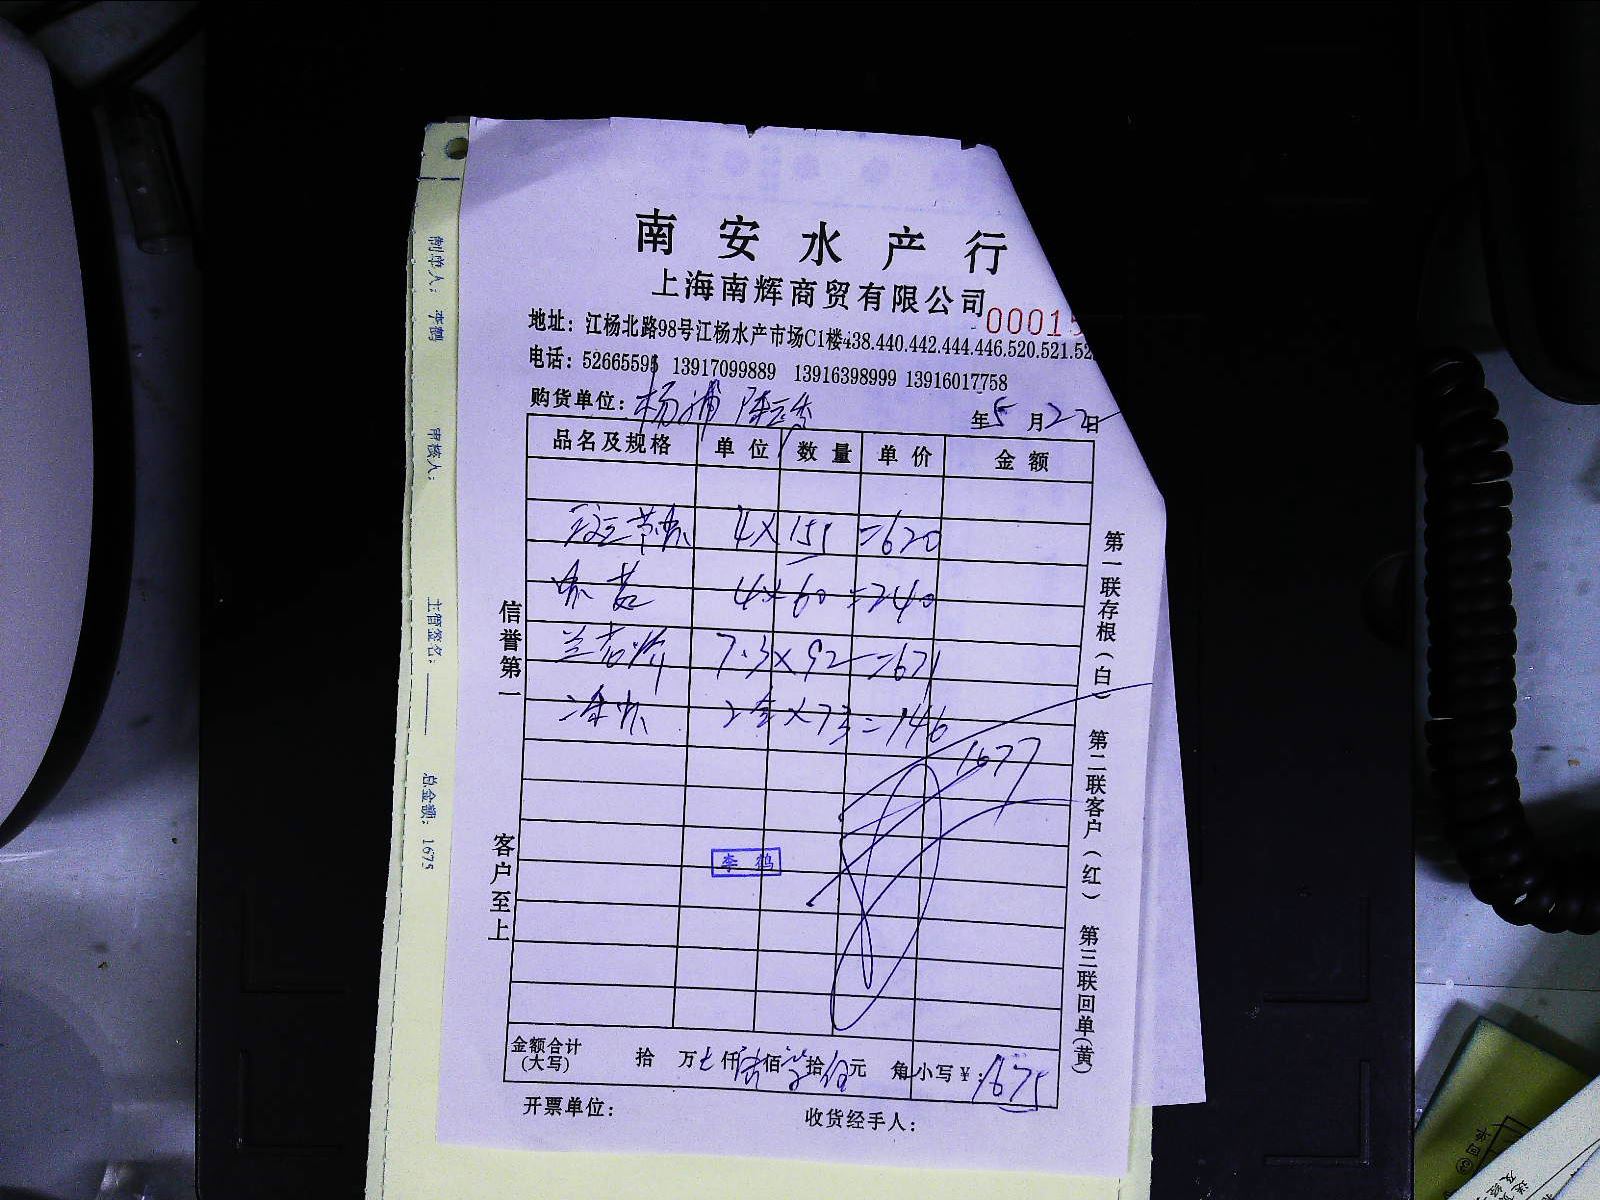 南安水产行
上海南辉商贸有限公司
00015
地址：江杨北路98号江杨水产市场C1楼438.440.442.444.446.520.521.52
电话：52665595 13917099889 13916398999 13916017758
购货单位：杨浦
年5月22日
品名及规格 单位 数量 单价 金额
4×155=620
4×60=240
7.3×92=671
2盒×73=146
1677
李鹤
金额合计(大写) 拾 万 仟陆佰柒拾伍元 角 小写￥：1675
开票单位： 收货经手人：
信誉第一
客户至上
第一联存根(白)
第二联客户(红)
第三联回单(黄)
制单人：李鹤
审核人：
主管签名：
总金额：1675